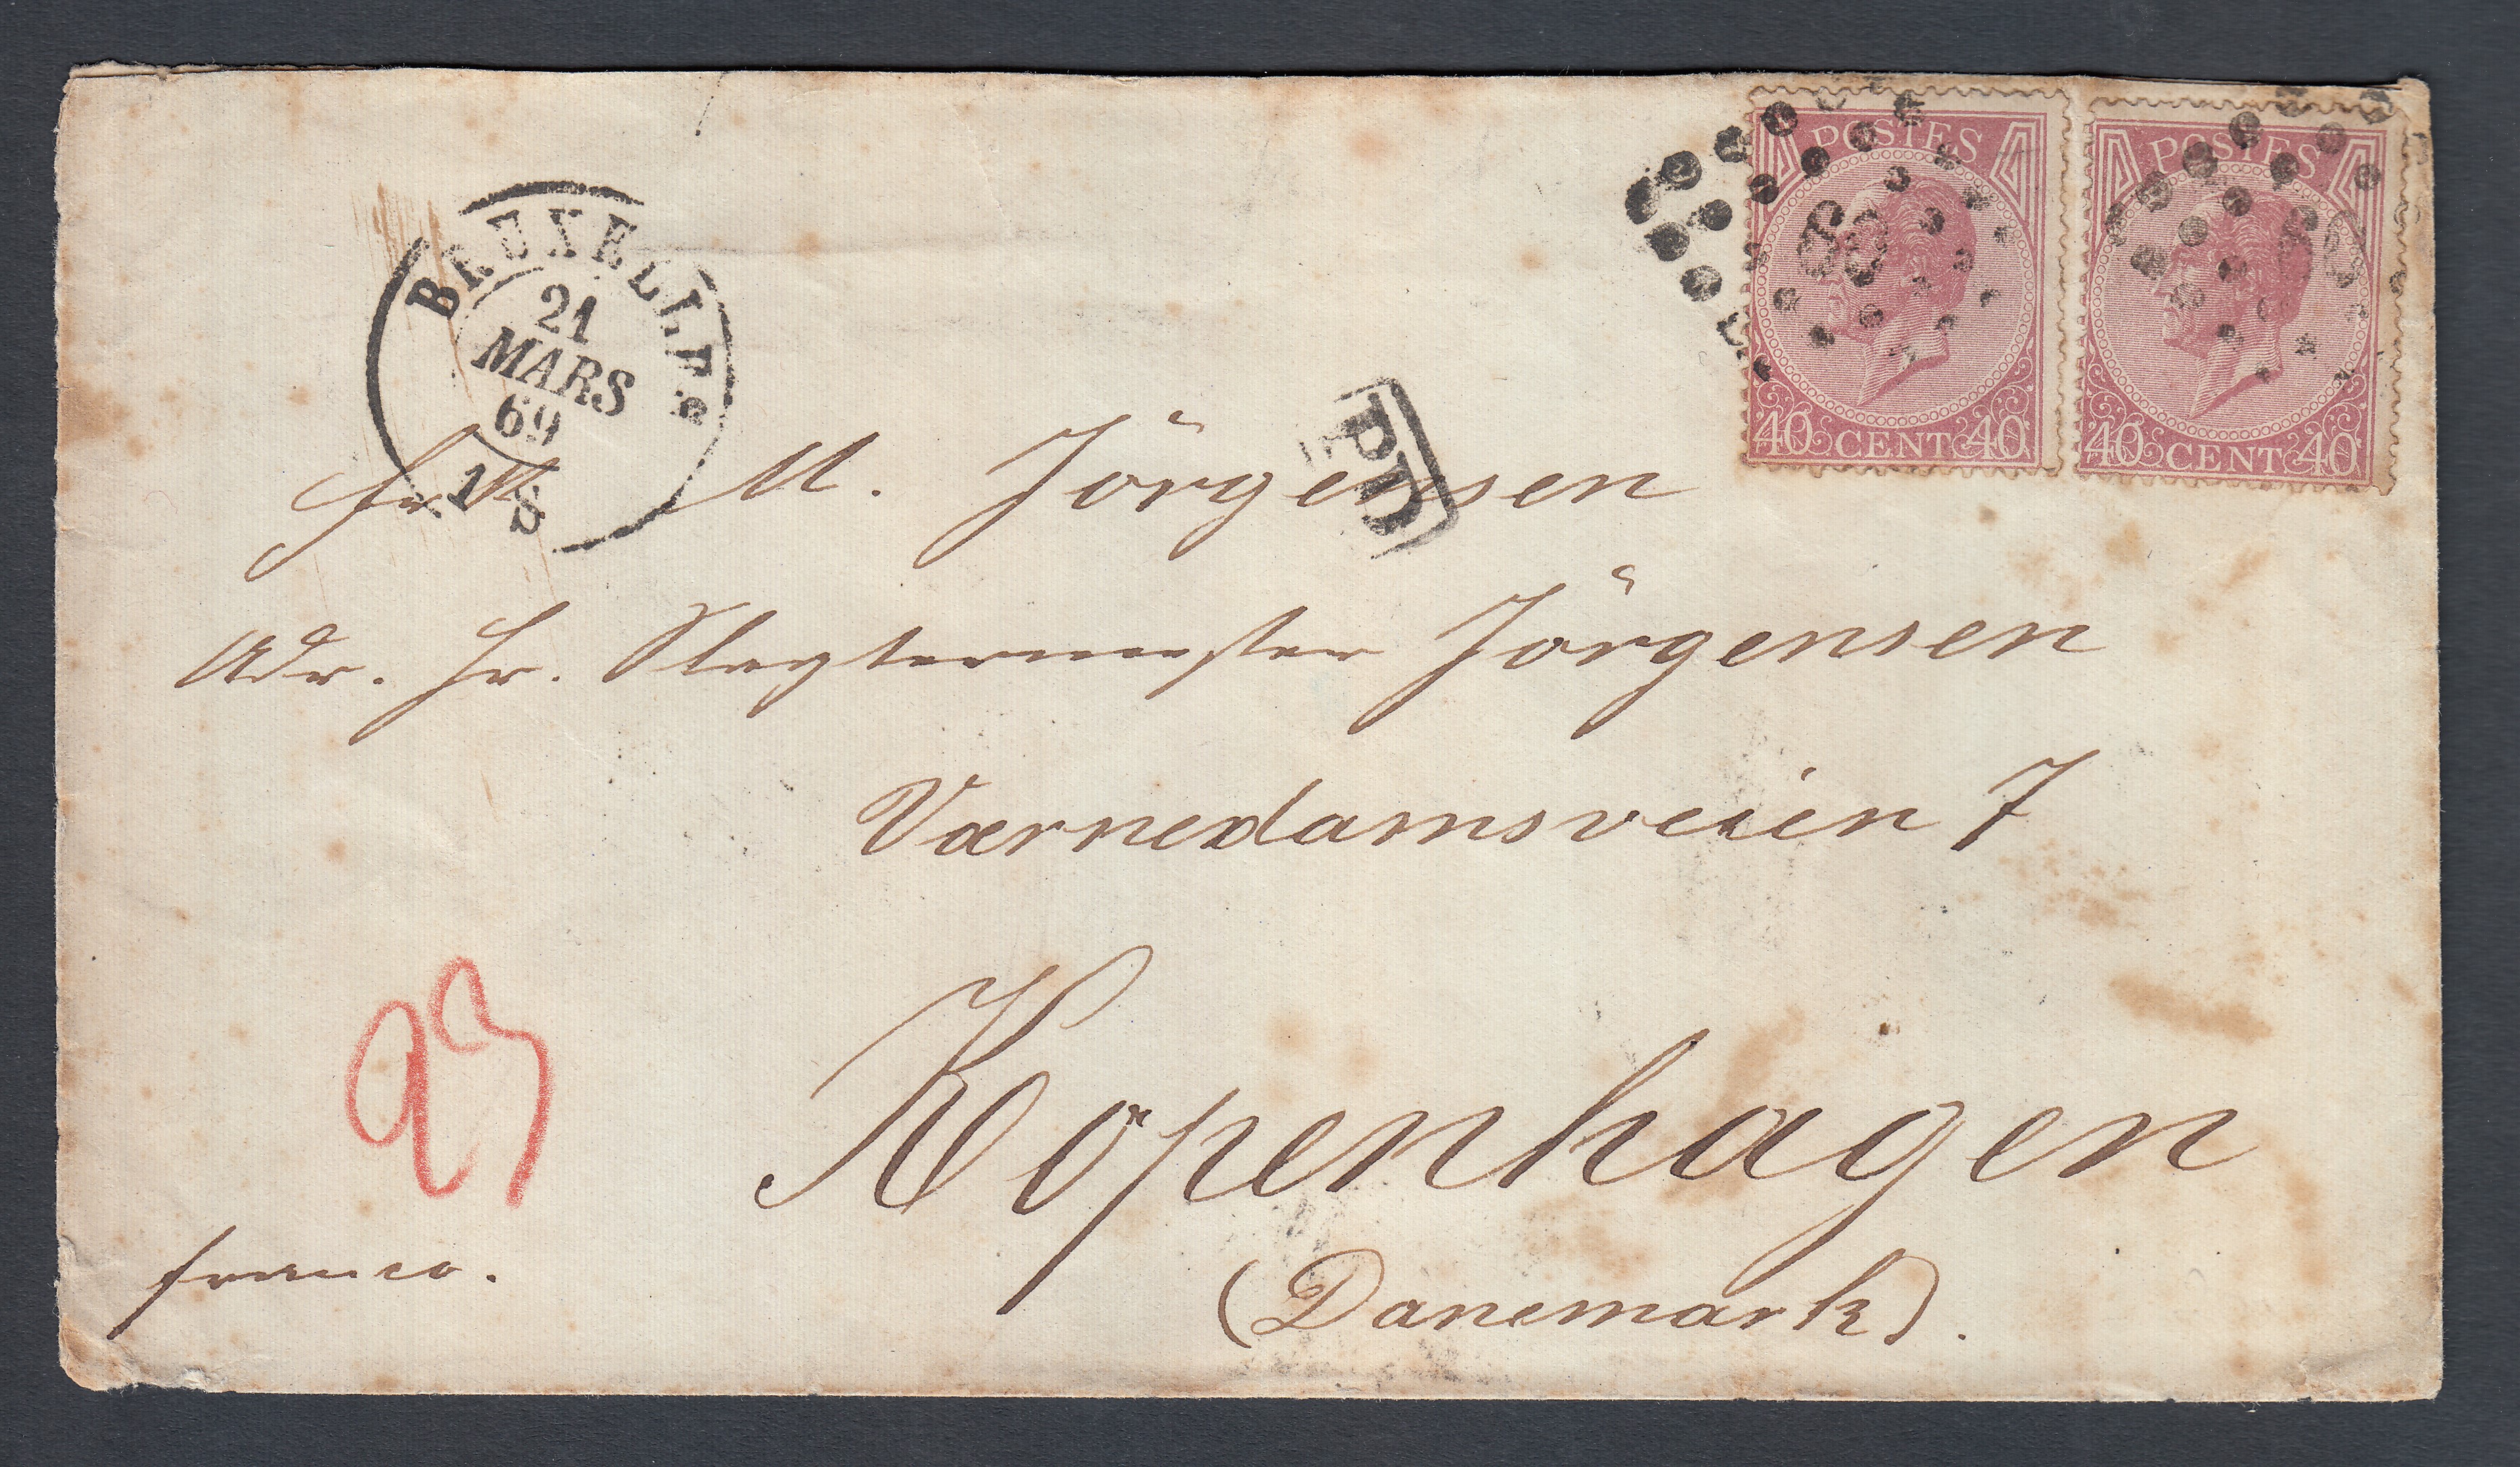 POSTES
40 CENT 40
POSTES
40 CENT 40
60
BRUXELLES
21
MARS
69
1 S
PD
Frk M. Jörgensen
Adr. Hr. Slagtermester Jörgensen
Værnedamsveien 7
Kopenhagen
(Danemark).
franco.